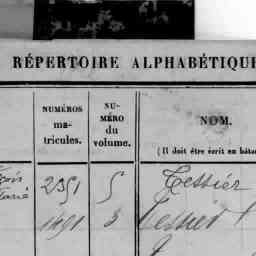 RÉPERTOIRE ALPHABÉTIQUE
NUMÉROS
ma-
tricules.
NU-
MÉRO
du
volume.
NOM.
(Il doit être écrit en bâta
2351 5 Tessier
1491 3 Tessier